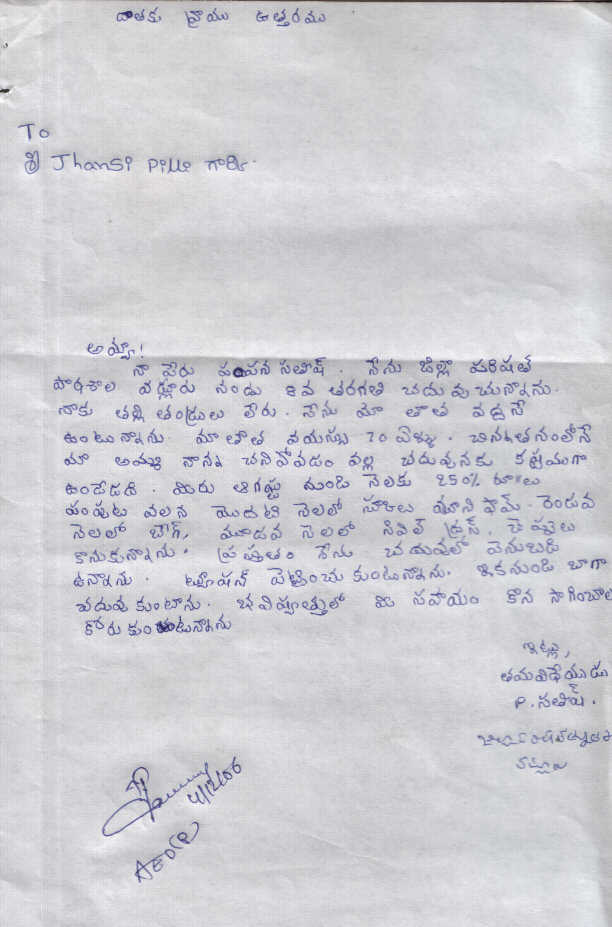 దాతకు వ్రాయు ఉత్తరము
To
శ్రీ Jhansi Pille గారికి.
అయ్యా!
నా పేరు పంపన సతీష్. నేను జిల్లా పరిషత్
పాఠశాల వర్లూరు నందు 8వ తరగతి చదువుచున్నాను.
నాకు తల్లి తండ్రులు లేరు. నేను మా తాత వద్దనే
ఉంటున్నాను. మా తాత వయస్సు 70 ఏళ్ళు. చిన్నతనంలోనే
మా అమ్మ నాన్న చనిపోవడం వల్ల చదువునకు కష్టముగా
ఉండేడది. మీరు ఆగష్టు నుండి నెలకు 250% రూ॥లు
పంపుట వలన మొదటి నెలలో స్కూలు యూనిఫామ్. రెండువ
నెలలో బ్యాగ్, మూడవ నెలలో సివిల్ డ్రస్, చెప్పులు
కొనుకున్నాను. ప్రస్తుతం నేను చదువులో వెనుబడి
ఉన్నాను. ట్యూషన్ పెట్టించు కుంటున్నాను. ఇకనుండి బాగా
చదువు కుంటాను. భవిష్యత్తులో మీ సహాయం కొన సాగించాల
కోరు కుంటున్నాను
ఇట్లు,
తమవిధేయుడు
P. సతీష్.
4/12/06
AEO(P)